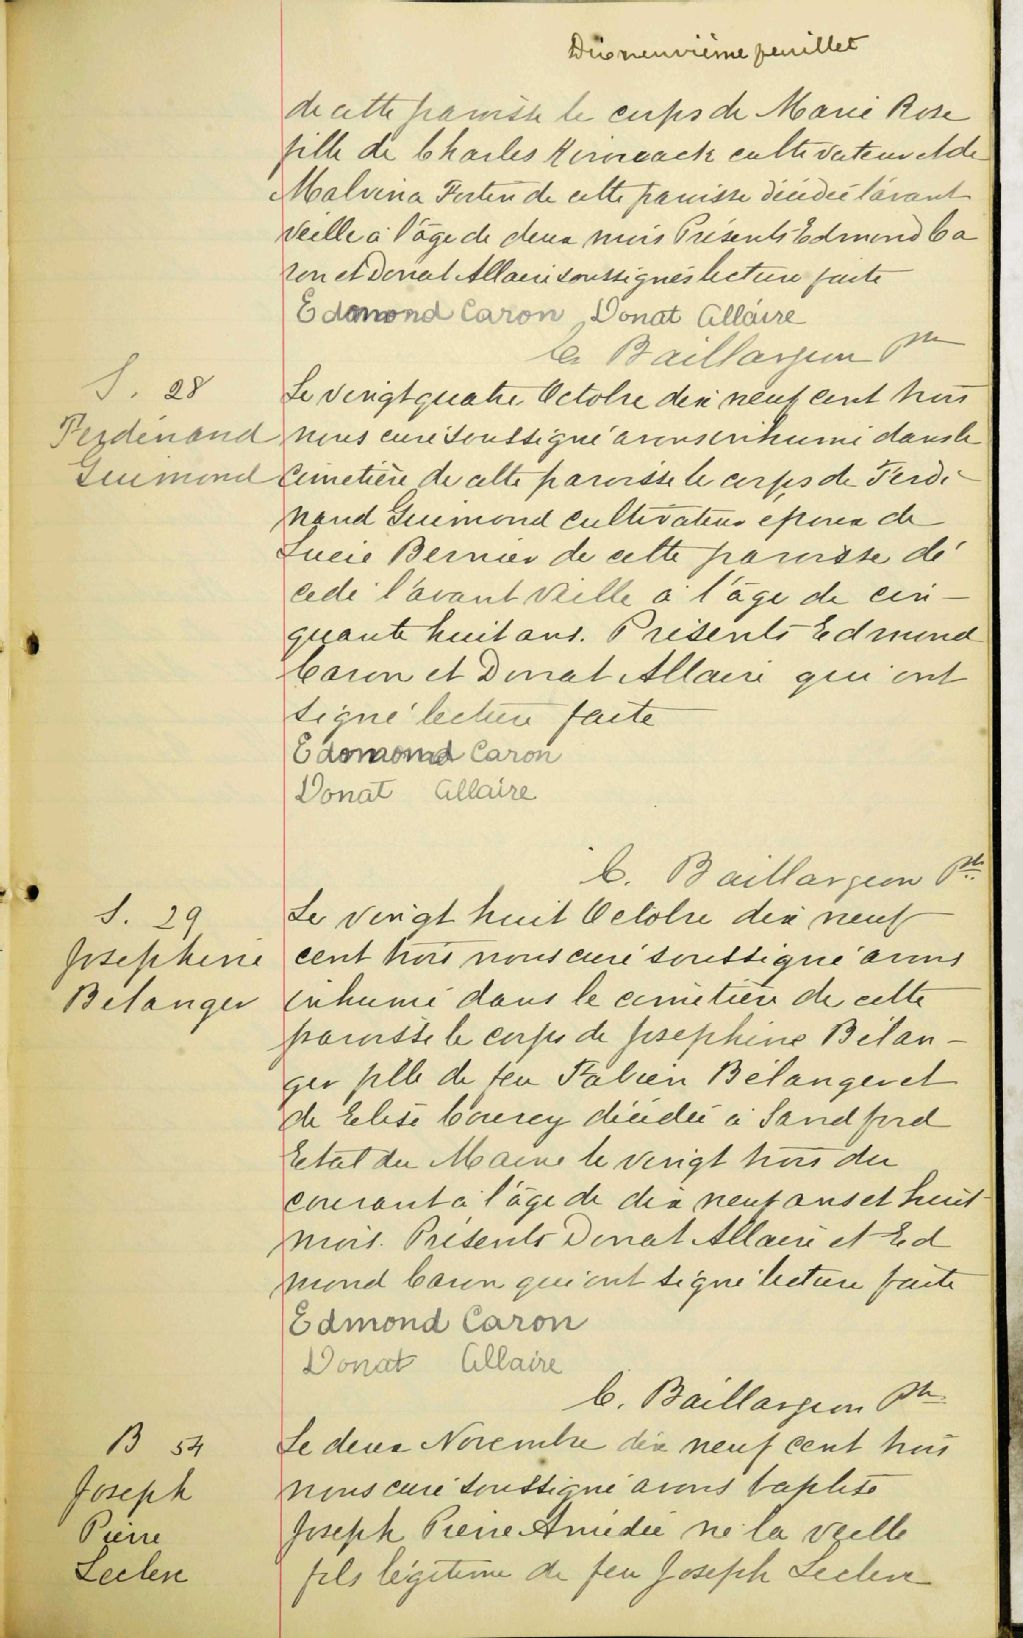 Dix neuvième feuillet
de cette paroisse le corps de Marie Rose
fille de Charles cultivateur et de
Malvina Fortin de cette paroisse décédée l'avant
veille à l'âge de deux mois Présents Edmond Ca
ron et Donat Allaire soussignés lecture faite
Edmond Caron Donat Allaire
C. Baillargeon Ptre
S. 28
Ferdinand
Guimond
Le vingt quatre Octobre dix neuf cent trois
nous curé soussigné avons inhumé dans le
cimetière de cette paroisse le corps de Ferdi-
nand Guimond cultivateur époux de
Lucie Bernier de cette paroisse dé
cédé l'avant veille à l'âge de cin-
quante huit ans. Présents Edmond
Caron et Donat Allaire qui ont
signé lecture faite
Edmond Caron
Donat Allaire
C. Baillargeon Ptre
S. 29
Josephine
Belanger
Le vingt huit Octobre dix neuf
cent trois nous curé soussigné avons
inhumé dans le cimetière de cette
paroisse le corps de Josephine Bélan-
ger fille de feu Fabien Bélanger et
de Elise décédée à Sandford
Etat du Maine le vingt trois du
courant à l'âge de dix neuf ans et huit
mois. Présents Donat Allaire et Ed
mond Caron qui ont signé lecture faite
Edmond Caron
Donat Allaire
C. Baillargeon Ptre
B 54
Joseph
Pierre
Leclerc
Le deux Novembre dix neuf cent trois
nous curé soussigné avons baptisé
Joseph Pierre Amédée né la veille
fils légitime de feu Joseph Leclerc